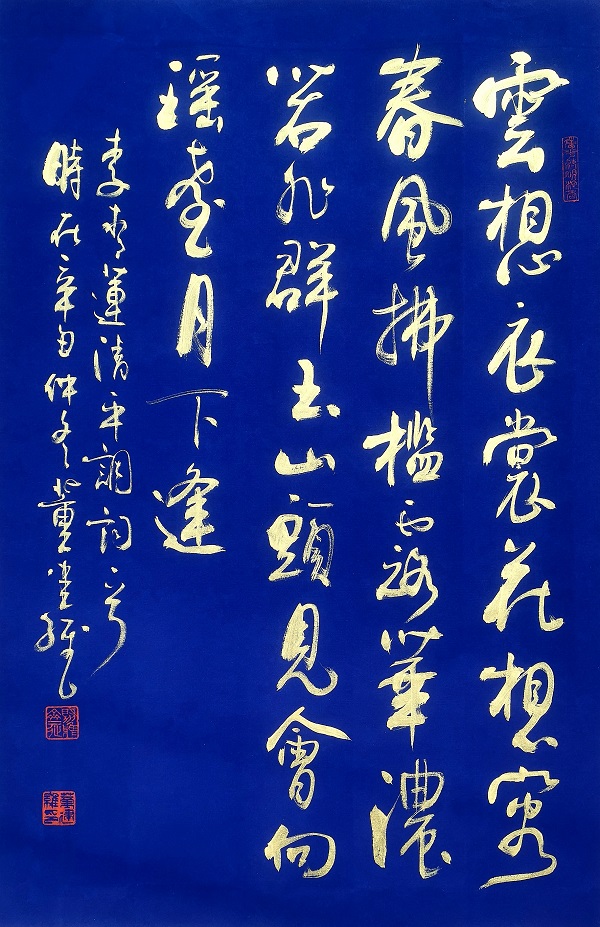 雲想衣裳花想容
春風拂檻露華濃
若非群玉山頭見會向
瑤臺月下逢
李青蓮清平調詞
時在辛丑仲冬董